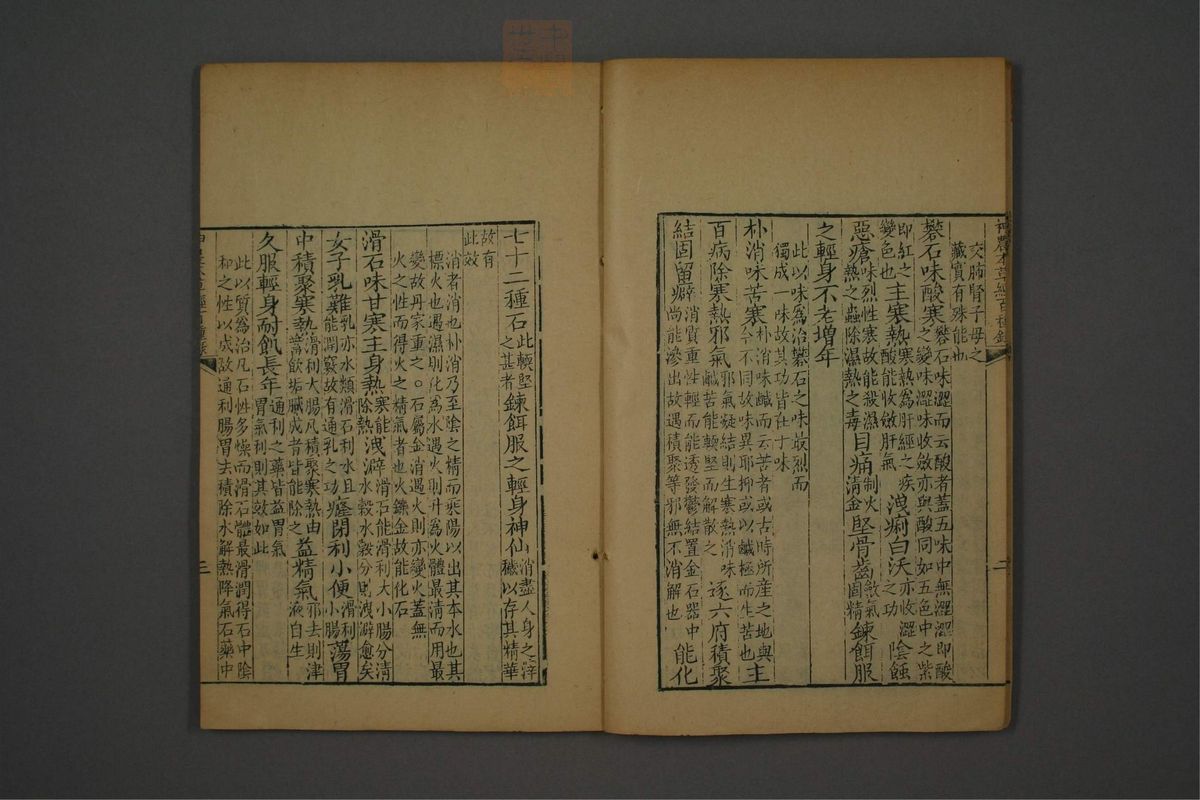 神農本草經百種錄
二
交肺腎子母之
藏實有殊能也
礬石味酸寒礬石味澀而云酸者蓋五味中無澀澀即酸
之變味澀味收斂亦與酸同如五色中之紫
即紅之變色也主寒熱寒熱爲肝經之疾酸能收斂肝氣洩痢白沃亦收澀之功陰蝕
惡瘡味烈性寒故能殺濕熱之蟲除濕熱之毒目痛制火清金堅骨齒斂氣固精鍊餌服
之輕身不老增年
此以味爲治礬石之味最烈而
獨成一味故其功皆在于味
朴消味苦寒朴消味鹹而云苦者或古時所產之地與今不同故味異耶抑或以鹹極而生苦也主
百病除寒熱邪氣邪氣凝結則生寒熱消味鹹苦能輭堅而解散之逐六府積聚
結固留癖消質重性輕而能透發鬱結置金石器中尚能滲出故遇積聚等邪無不消解也能化
七十二種石此輭堅之甚者鍊餌服之輕身神仙消盡人身之滓穢以存其精華
故有
此效
消者消也朴消乃至陰之精而乘陽以出其本水也其
標火也遇濕則化爲水遇火則升爲火體最清而用最
變故丹家重之○石屬金消遇火則亦變火蓋無
火之性而得火之精氣者也火鑠金故能化石
滑石味甘寒主身熱寒能除熱洩澼滑石能滑利大小腸分清水穀水穀分則洩澼愈矣
女子乳難乳亦水類滑石利水且能開竅故有通乳之功癃閉利小便滑利小腸蕩胃
中積聚寒熱滑利大腸凡積聚寒熱由蓄飲垢膩成者皆能除之益精氣邪去則津液自生
久服輕身耐飢長年通利之藥皆益胃氣胃氣利則其效如此
此以質爲治凡石性多燥而滑石體最滑潤得石中陰
和之性以成故通利腸胃去積除水解熱降氣石藥中
三